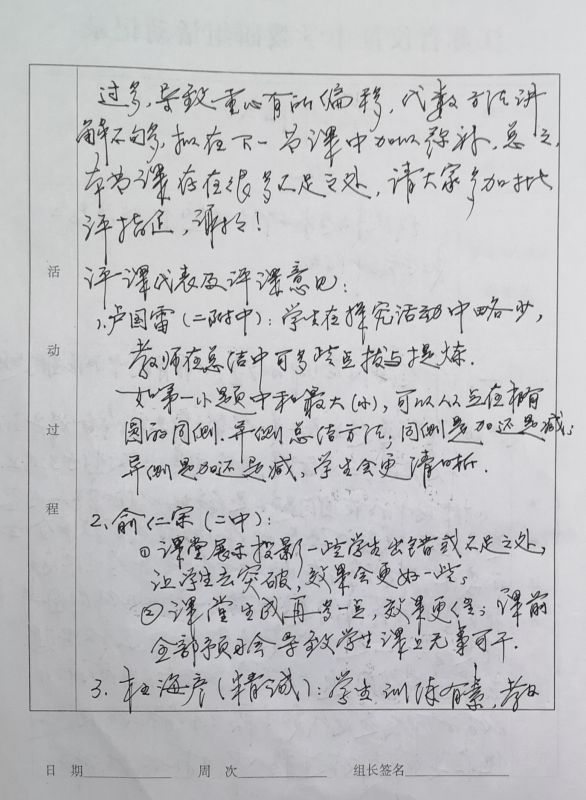 过多,导致重心有所偏移,代数方法讲
解不够多,拟在下一节课中加以弥补,总之,
本节课存在很多不足之处,请大家多加批
评指正,谢谢!
评课代表及评课意见:
1.卢国雷(二附中):学生在探究活动中略少,
教师在总结中可多些点拨与提炼.
如第一小题中和最大(小),可以从点在椭
圆的同侧.异侧总结方法;同侧是加还是减;
异侧是加还是减,学生会更清晰.
2.俞仁宗(二中):
①课堂展示投影一些学生出错或不足之处,
让学生去突破,效果会更好一些;
②课堂生成再多一点,效果更佳;课前
全部预习会导致学生课上无事可干.
3.杜海彦(精诚):学生训练有素,教
活
动
过
程
日 期 周 次 组长签名